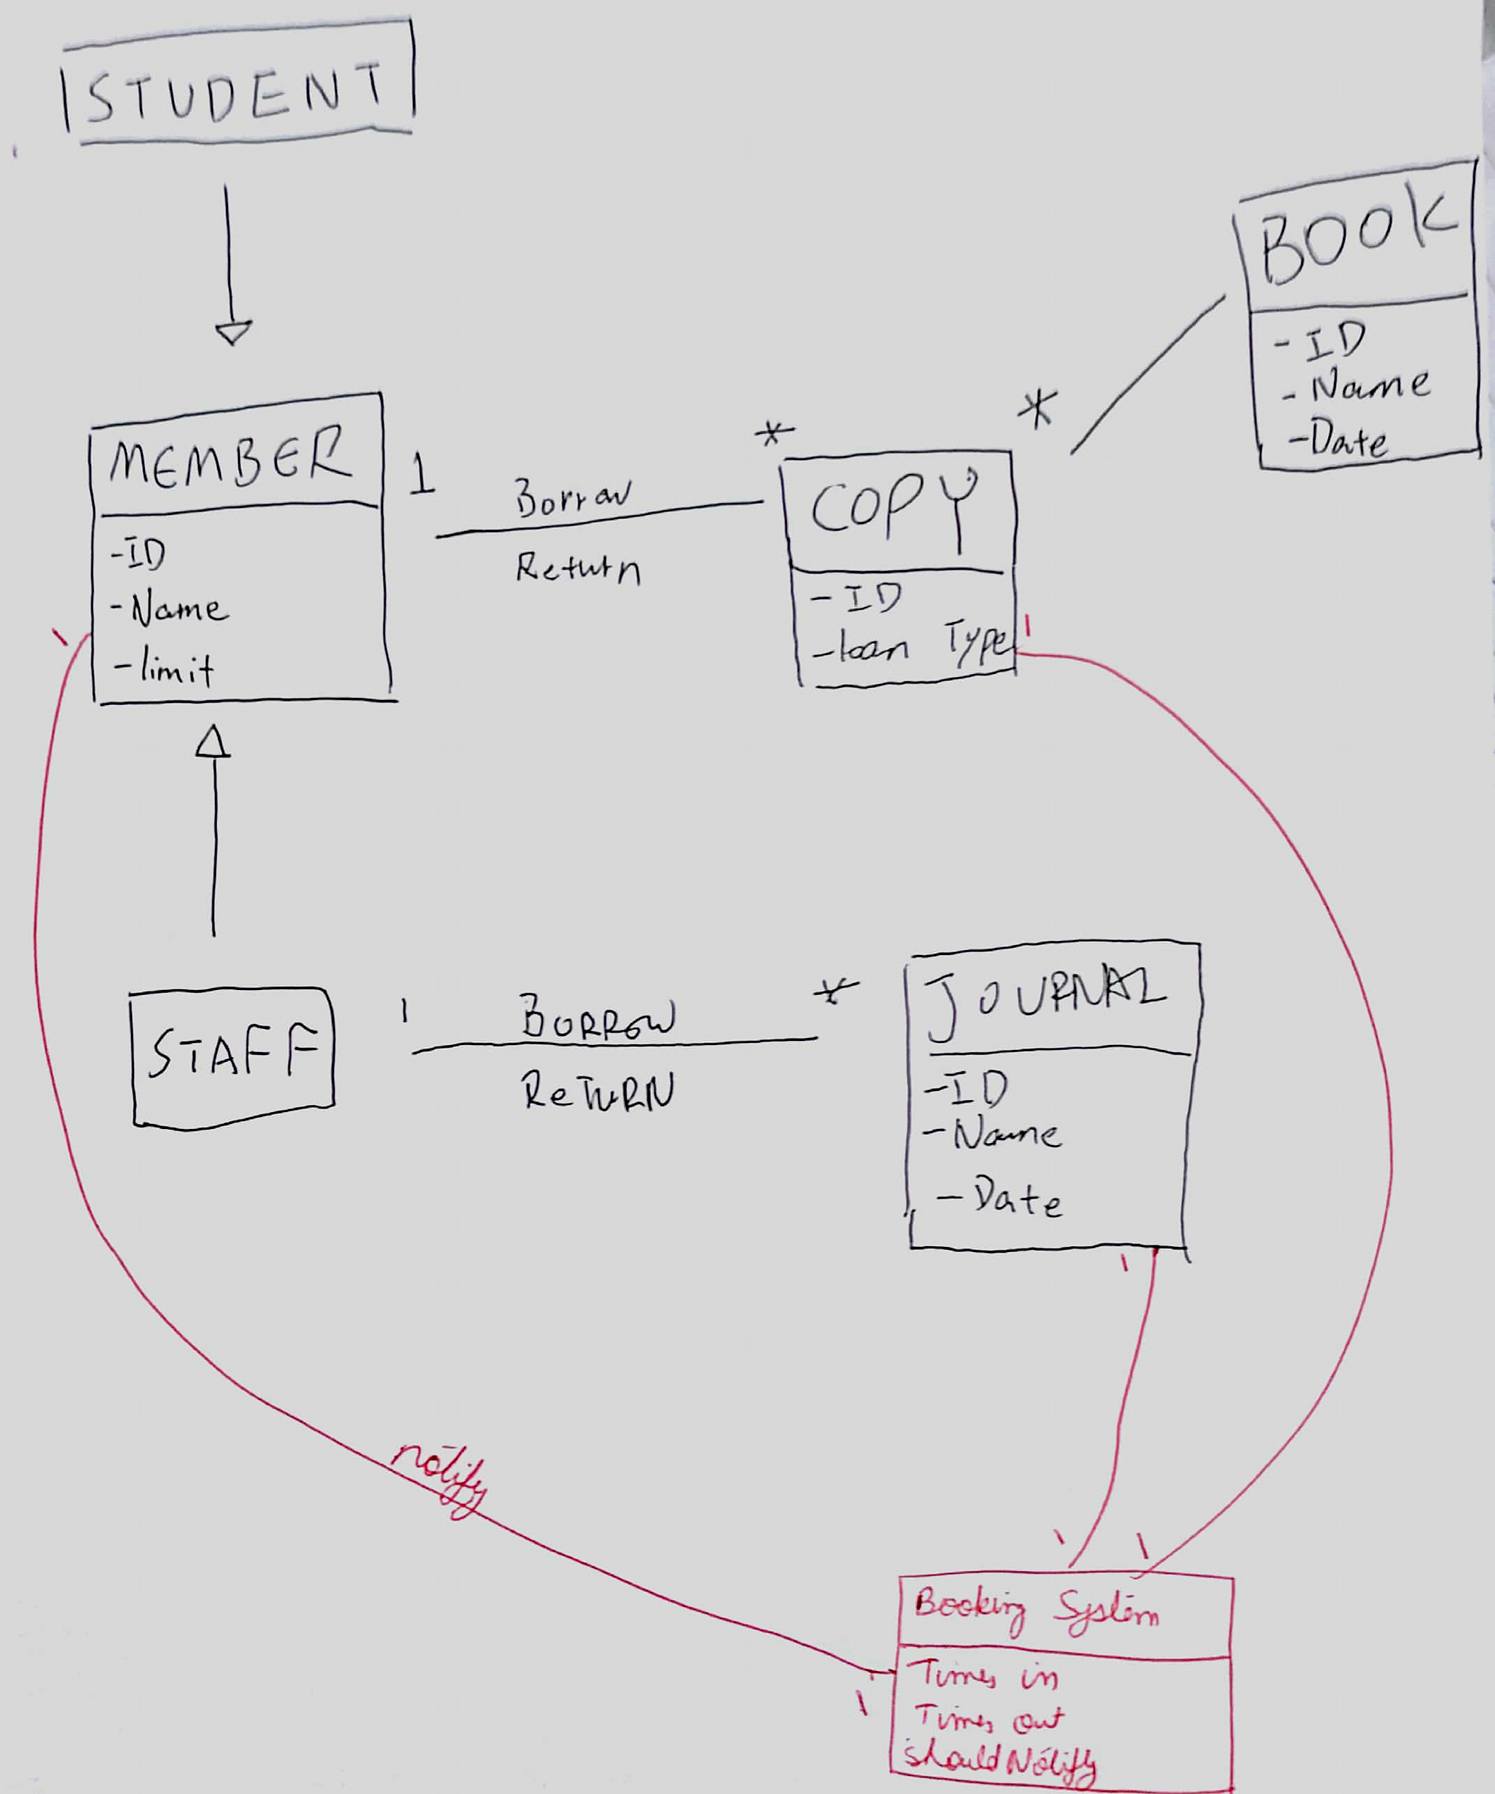 STUDENT
BOOK
- ID
- Name
- Date
MEMBER
- ID
- Name
- limit
1
Borrow
Return
*
COPY
- ID
- loan Type
*
1
1
STAFF
1
BORROW
ReTURN
*
JOURNAL
- ID
- Name
- Date
1
notify
1
1
1
Booking System
Times in
Times out
shouldNotify